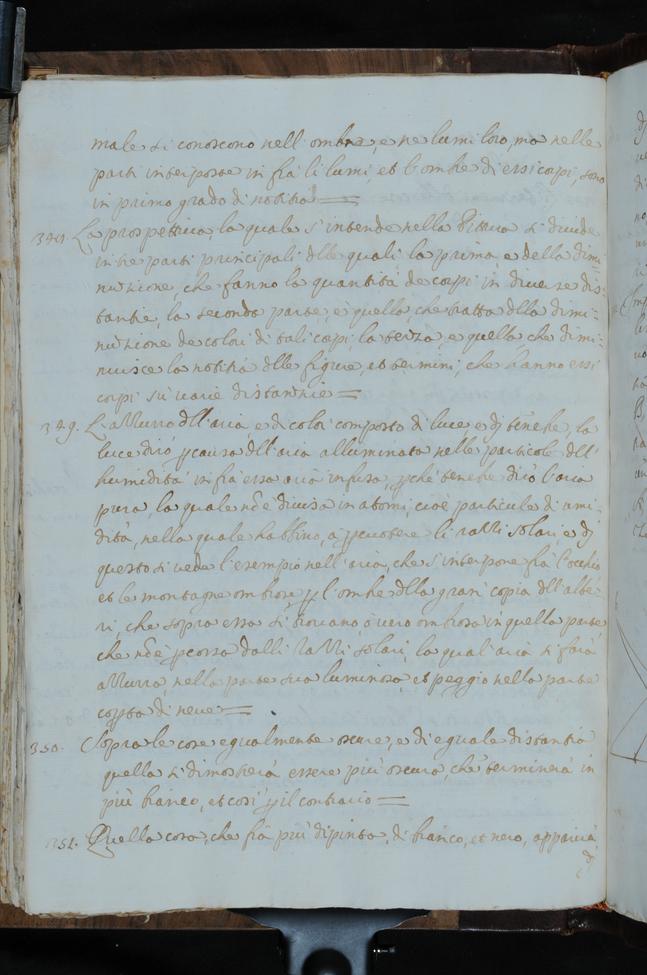 male si conoscono nell'ombra, e ne lumi loro, ma nelle
parti interposte infrà li lumi, et l'ombre di essi corpi, sono
in primo grado di notitia =
La prospettiva, la quale s'intende nella Pittura si divide
in tre parti principali delle quali la prima e della dimi=
nuzione, che fanno la quantità de corpi in diverse dis=
tantie, la seconda parte, e quella che tratta della dimi=
nuzione de colori di tali corpi la terza, e quella che dimi=
nuisce la notitia delle figure, et termini, che hanno essi
corpi in varie distantie =
349. L'azzurro dell'aria e di color composto di luce, e di tenebre, la
luce dirò p causa dell'aria alluminata nelle particole dell'
humidità infrà essa aria infusa, p chè tenebre dirò l'aria
pura, la quale nõ è divisa in atomi, cioè particule di umi=
dità, nella quale habbino, a percuotere li razzi solari e di
questo si vede l'esempio nell'aria, che s'interpone frà l'occhio
et le montagne ombrose p l'ombre della gran' copia dell'albe=
ri, che sopra essa si trovano, ò vero ombrosa in quella parte
che nõ è percossa dalli razzi solari, la qual'aria si farà
azzurra, nella parte sua luminosa, et peggio nella parte
coperta di neve =
350. Sopra le cose egualmente oscure, e di eguale distantia
quella si dimostrerà essere più oscura, che terminerà in
più bianco, et così p il contrario =
351. Quella cosa, che fia più dipinta, di bianco, et nero, apparirà